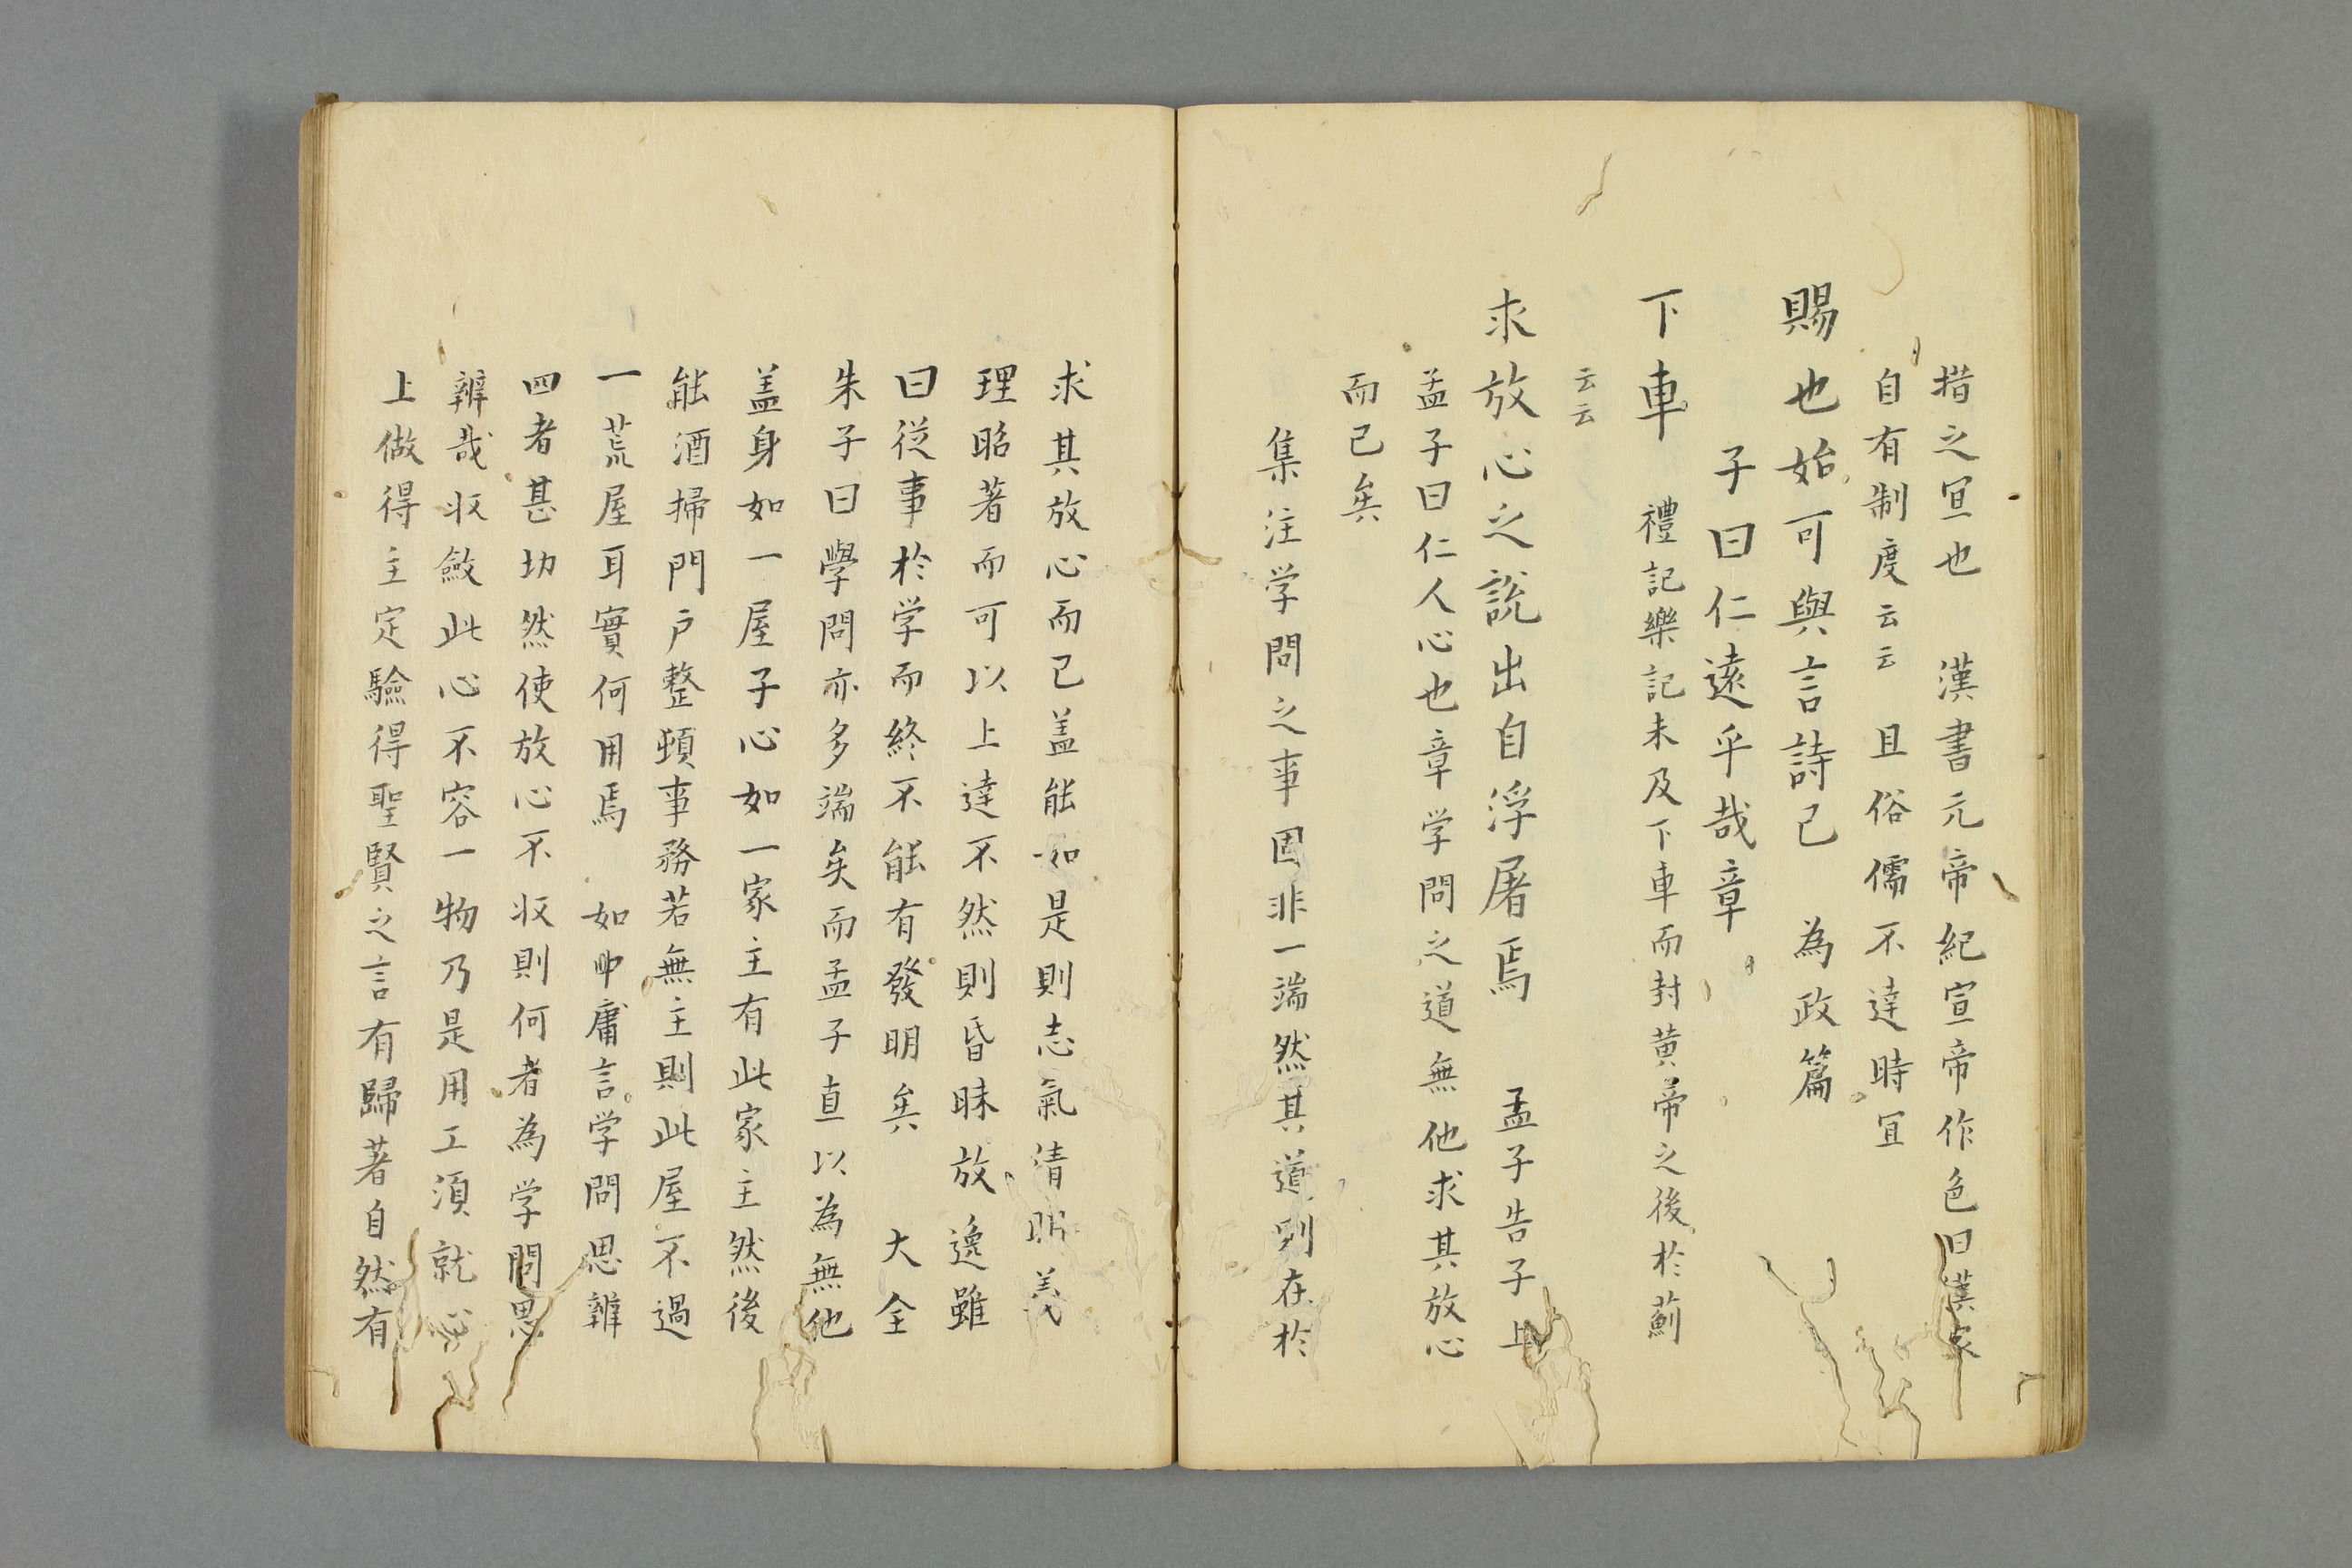 措之宜也　漢書元帝紀宣帝作色曰漢家
自有制度云云　且俗儒不達時宜
賜也始可與言詩已　為政篇
子曰仁遠乎哉章
下車　禮記樂記未及下車而封黄帝之後於薊
云云
求放心之說出自浮屠焉　孟子告子上
孟子曰仁人心也章学問之道無他求其放心
而已矣
集注学問之事固非一端然其道則在於
求其放心而已盖能如是則志氣清明義
理昭著而可以上達不然則昏昧放逸雖
曰從事於学而終不能有發明矣　大全
朱子曰學問亦多端矣而孟子直以為無他
盖身如一屋子心如一家主有此家主然後
能洒掃門戶整頓事務若無主則此屋不過
一荒屋耳實何用焉　如中庸言学問思辨
四者甚切然使放心不収則何者為学問思
辨哉収斂此心不容一物乃是用工須就心
上做得主定驗得聖賢之言有歸著自然有